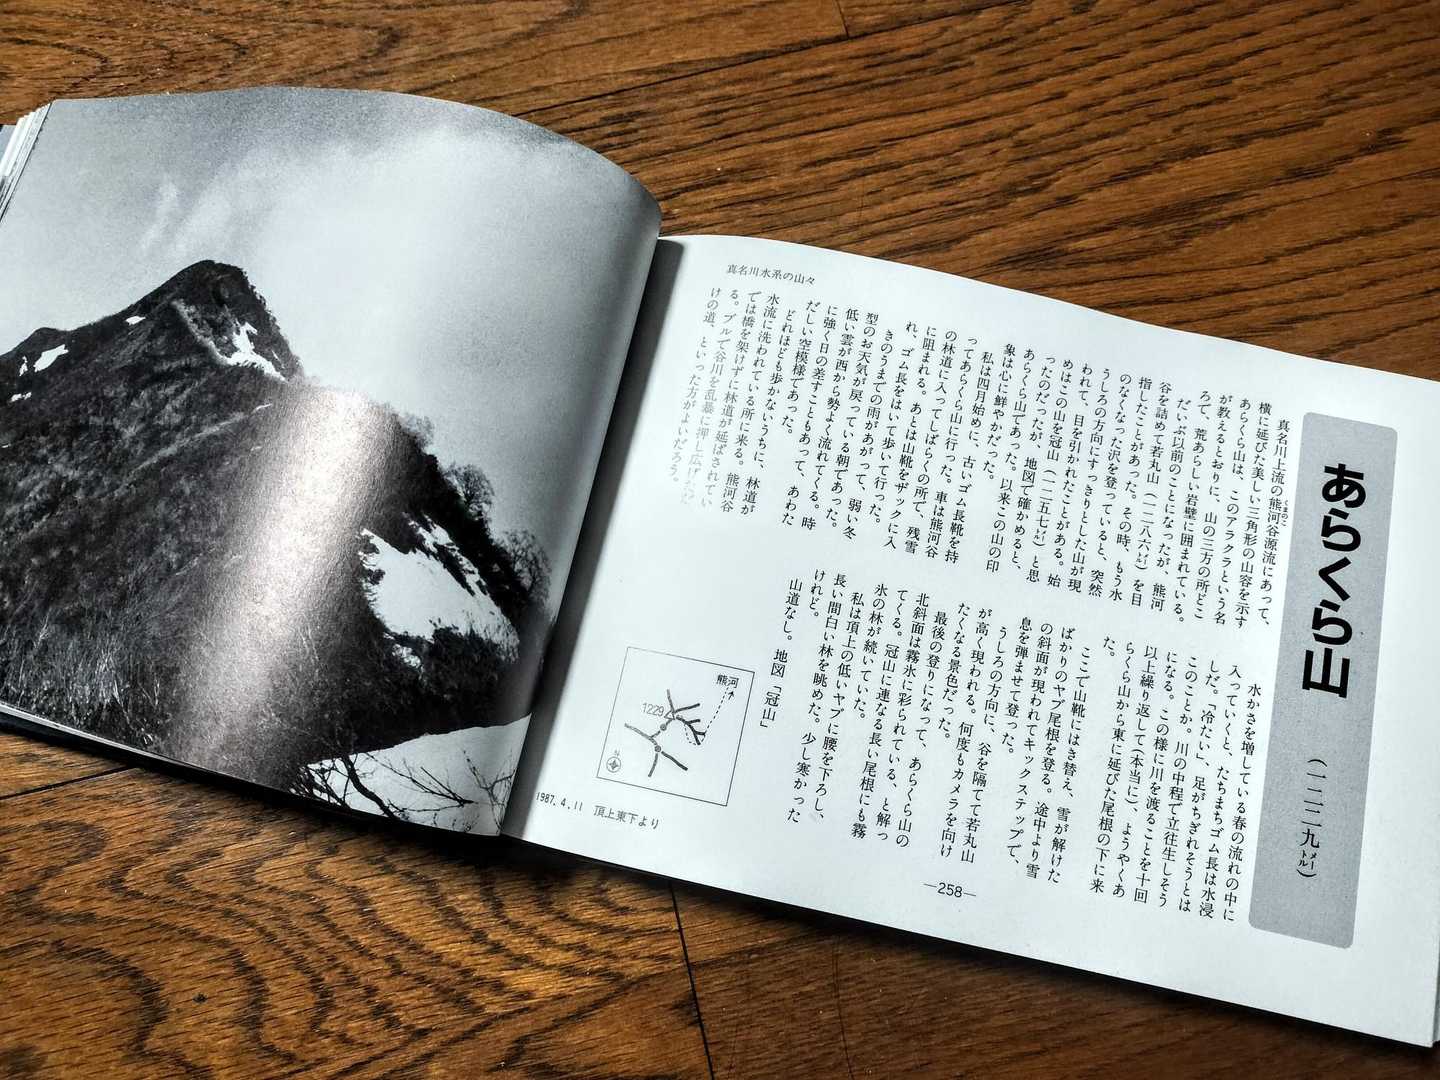 あらくら山
(一二二九メートル)
真名川上流の熊河谷源流にあって、
くまのこ
横に延びた美しい三角形の山容を示す
あらくら山は、このアラクラという名
が教えるとおりに、山の三方の所どこ
ろで、荒あらしい岩壁に囲まれている。
だいぶ以前のことになったが、熊河
谷を詰めて若丸山(一二八六メートル)を目
指したことがあった。その時、もう水
のなくなった沢を登っていると、突然
うしろの方向にすっきりとした山が現
われて、目を引かれたことがある。始
めはこの山を冠山(一二五七メートル)と思
ったのだったが、地図で確かめると、
あらくら山であった。以来この山の印
象は心に鮮やかだった。
私は四月始めに、古いゴム長靴を持
ってあらくら山に行った。車は熊河谷
の林道に入ってしばらくの所で、残雪
に阻まれる。あとは山靴をザックに入
れ、ゴム長をはいて歩いて行った。
きのうまでの雨があがって、弱い冬
型のお天気が戻っている朝であった。
低い雲が西から勢よく流れてくる。時
に強く日の差すこともあって、あわた
だしい空模様であった。
どれほども歩かないうちに、林道が
水流に洗われている所に来る。熊河谷
では橋を架けずに林道が延ばされてい
る。ブルで谷川を乱暴に押し広げただ
けの道、といった方がよいだろう。
水かさを増している春の流れの中に
入っていくと、たちまちゴム長は水浸
しだ。「冷たい」、足がちぎれそうとは
このことか。川の中程で立往生しそう
になる。この様に川を渡ることを十回
以上繰り返して(本当に)、ようやくあ
らくら山から東に延びた尾根の下に来
た。
ここで山靴にはき替え、雪が解けた
ばかりのヤブ尾根を登る。途中より雪
の斜面が現われてキックステップで、
息を弾ませて登った。
うしろの方向に、谷を隔てて若丸山
が高く現われる。何度もカメラを向け
たくなる景色だった。
最後の登りになって、あらくら山の
北斜面は霧氷に彩られている、と解っ
てくる。冠山に連なる長い尾根にも霧
氷の林が続いていた。
私は頂上の低いヤブに腰を下ろし、
長い間白い林を眺めた。少し寒かった
けれど。
山道なし。地図「冠山」
真名川水系の山々
熊河
1229
N
1987.4.11 頂上東下より
—258—